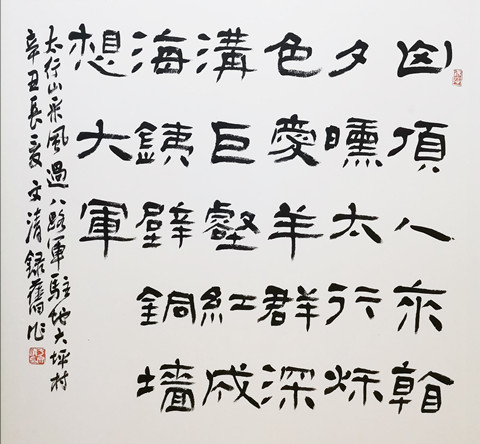 頂人來
夕曛太行秋
色愛羊群深
溝巨壑紅成
海銕壁銅墻
想大軍
太行山采風過八路軍駐地大坪村
辛丑長夏文清録舊作